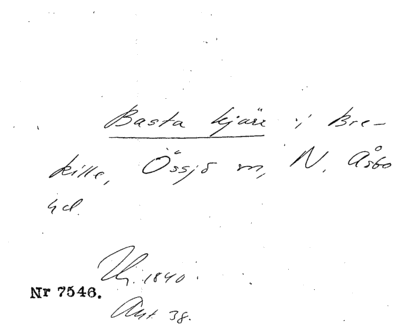 Basta kjärr i Bre-
kille, Össjö sn, N. Åsbo
hd.
Uj. 1840.
Nr 7546.
Ant 38.